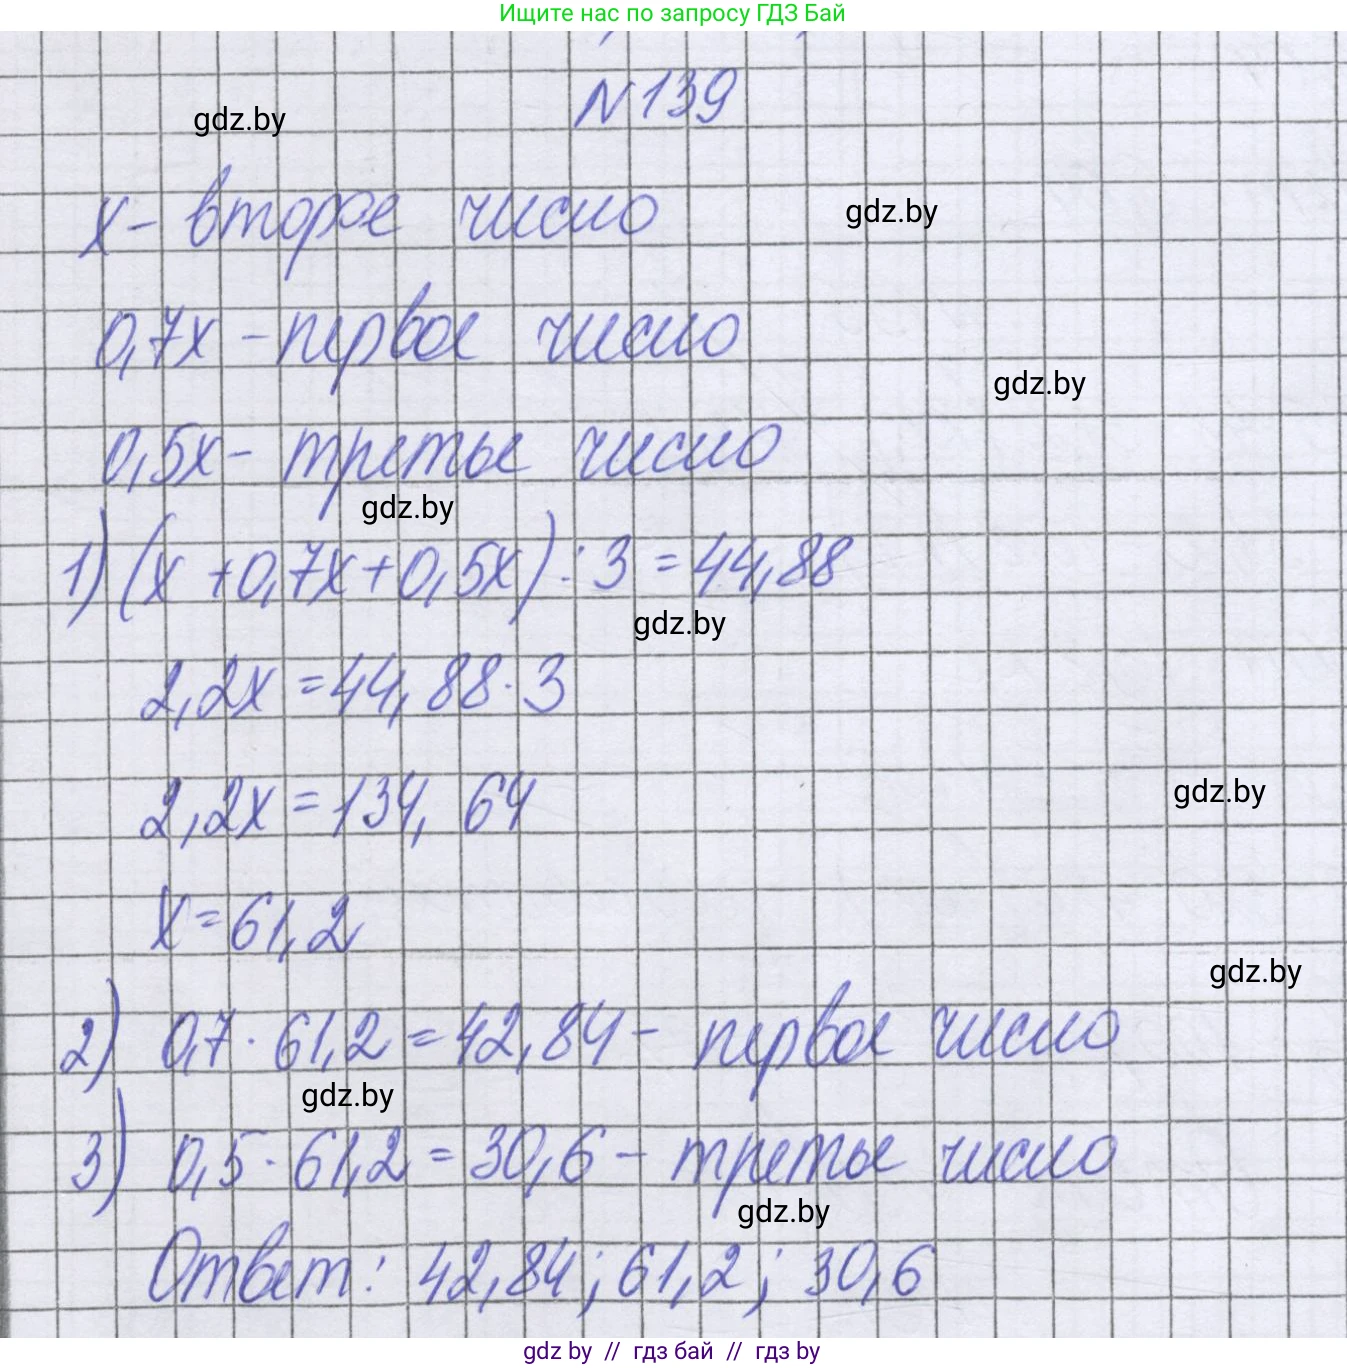 Ищите нас по запросу ГДЗ Бай
N 139
gdz.by
x - второе число
gdz.by
0,7x - первое число
gdz.by
0,5x - третье число
gdz.by
1) (x + 0,7x + 0,5x) : 3 = 44,88
gdz.by
2,2x = 44,88 · 3
2,2x = 134,64
gdz.by
x = 61,2
gdz.by
2) 0,7 · 61,2 = 42,84 - первое число
gdz.by
3) 0,5 · 61,2 = 30,6 - третье число
gdz.by
Ответ: 42,84; 61,2; 30,6
gdz by // гдз бай // гдз by